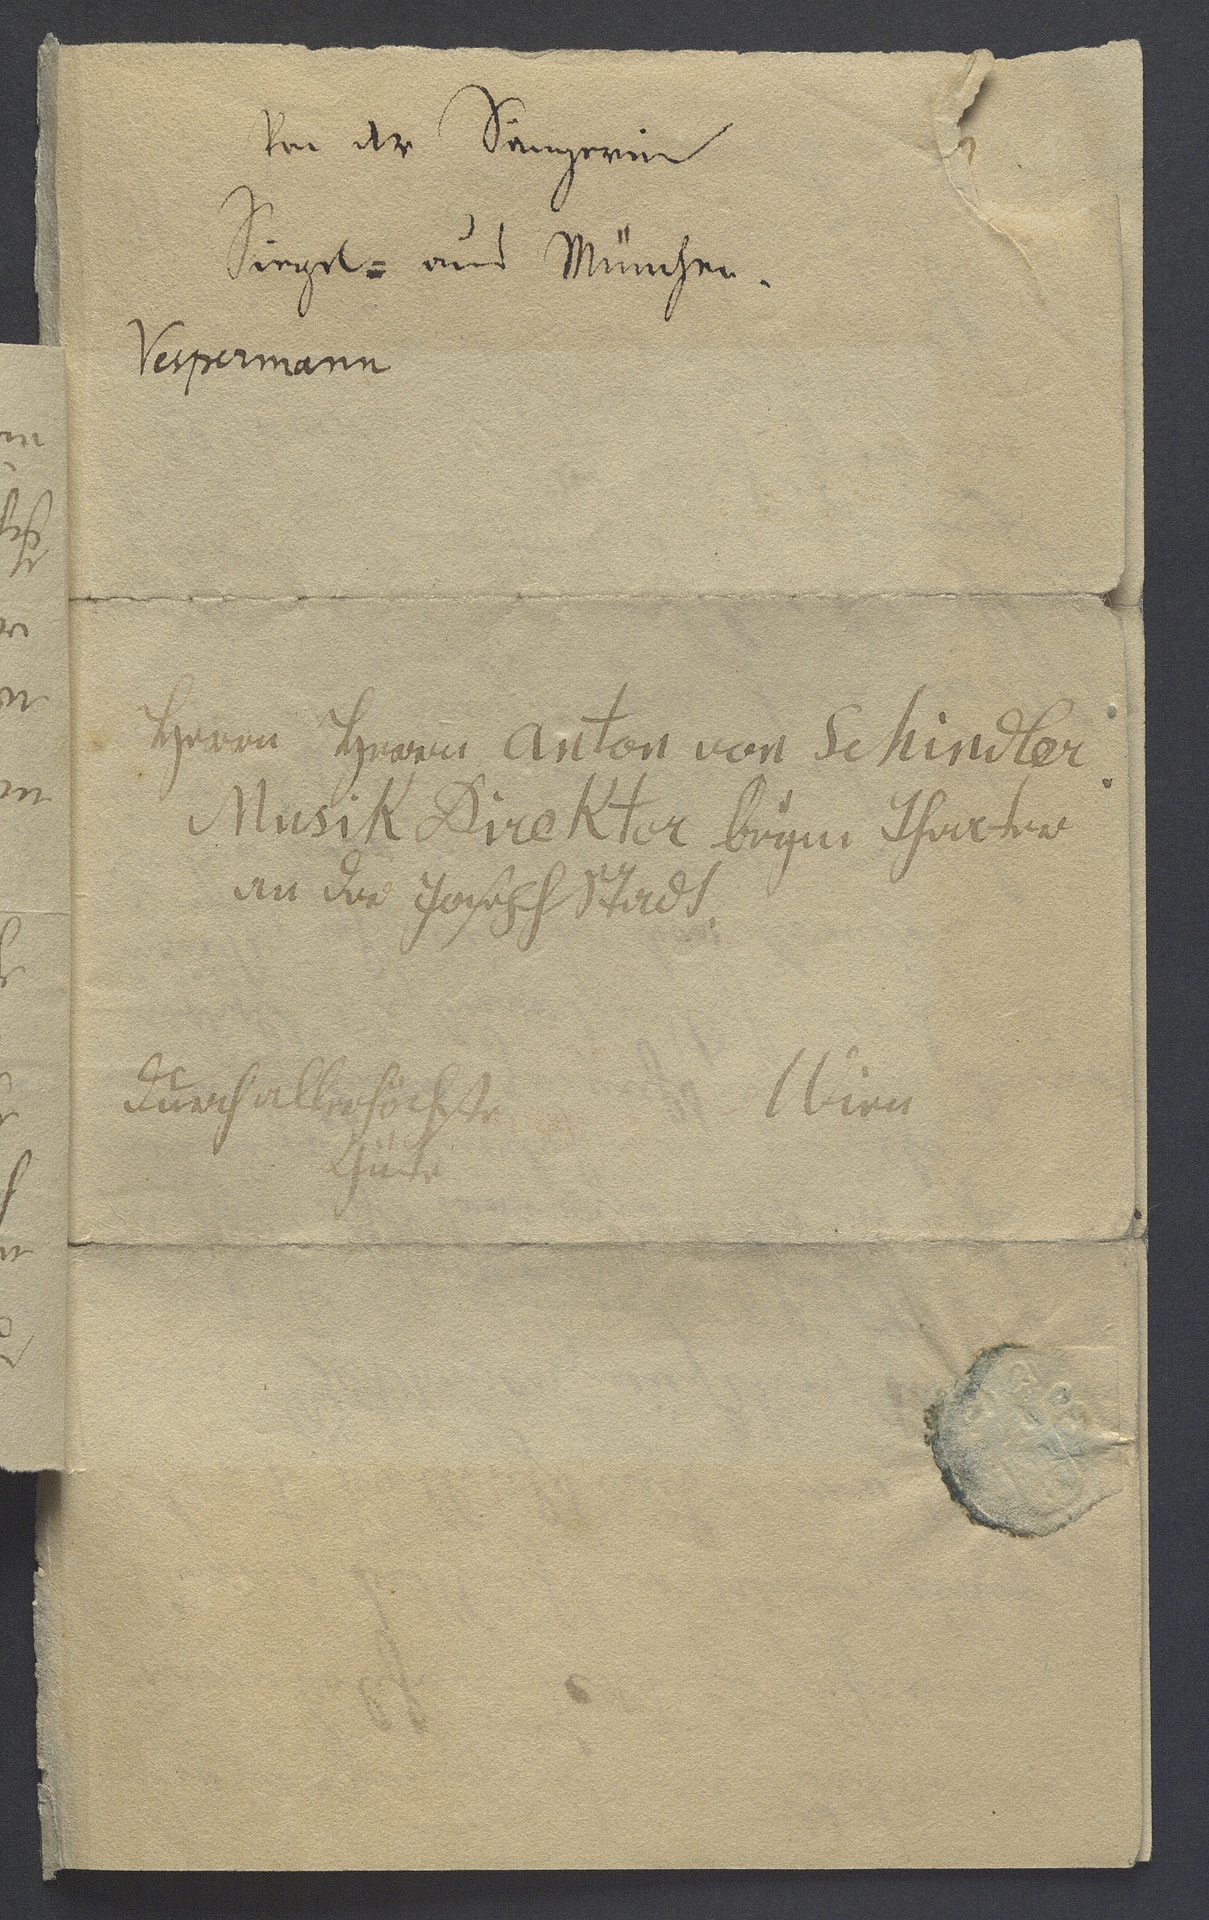 Von der Sängerin
Siegl= aus München.
Vespermann
Herrn Herrn Anton von Schindler
Musik Direktor beym Theater
an der Joseph Stadt.
durch allerhöchste Wien
Güte